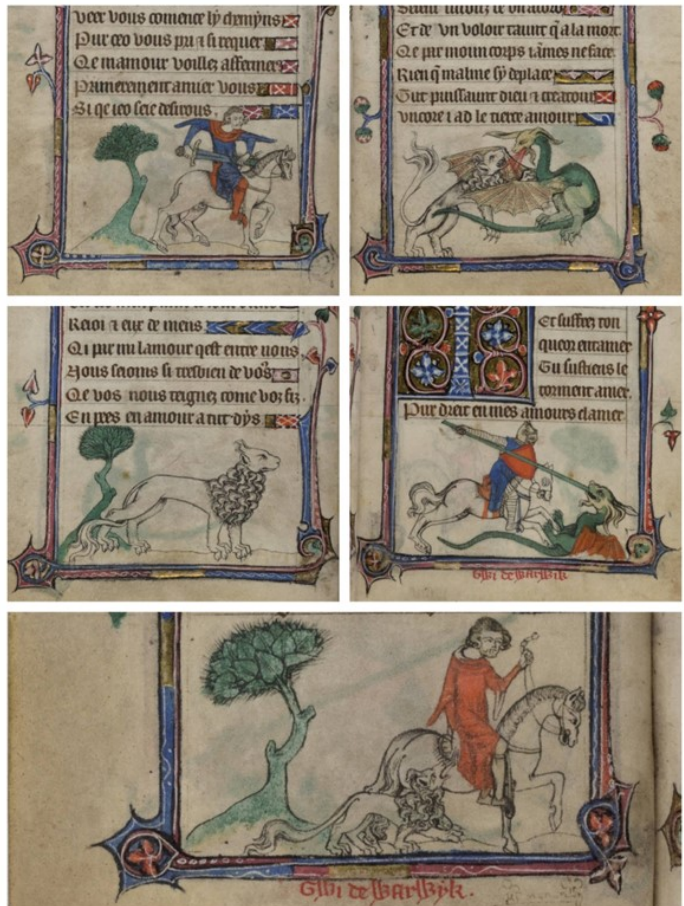 veer vous comence ly chemyns
Pur ceo vous pri & si requer
Qe mamour voillez affermer
Primerement amer vous
Si qe ieo seie desirous
Et de vn voloir taunt qa la mort
Qe pur moun corps iames ne face
Rien q maline sy deplace
Gut puissaunt dieu & creatour
vncore i ad le tierce amour
Retoi & eux de mens
Qi pur nu lamour qest entre nous
Nous seioms si tresbien de vos
Qe vos nous teignez come voz fiz
En pees en amour a tut dys
Et suffrez ton
queor entamer
Tu sustiens le
torment amer
Pur dreit en mes amours clamer
Gwi de Warwyk
Gwi de Warwyk.